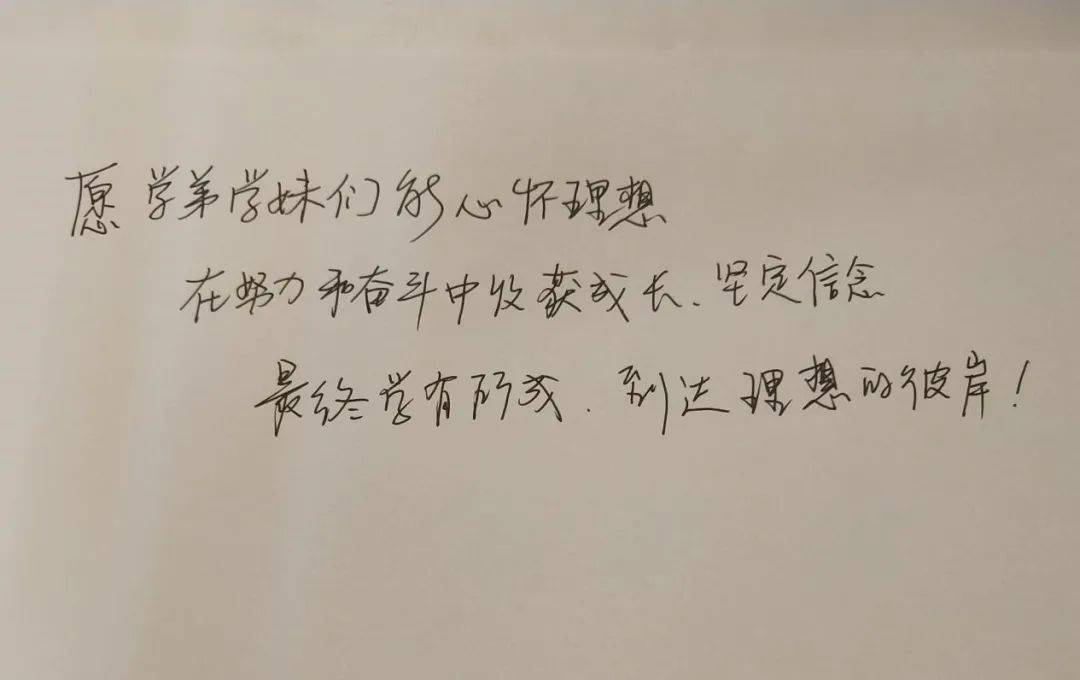 愿学弟学妹们能心怀理想
在努力和奋斗中收获成长、坚定信念
最终学有所成、到达理想的彼岸！